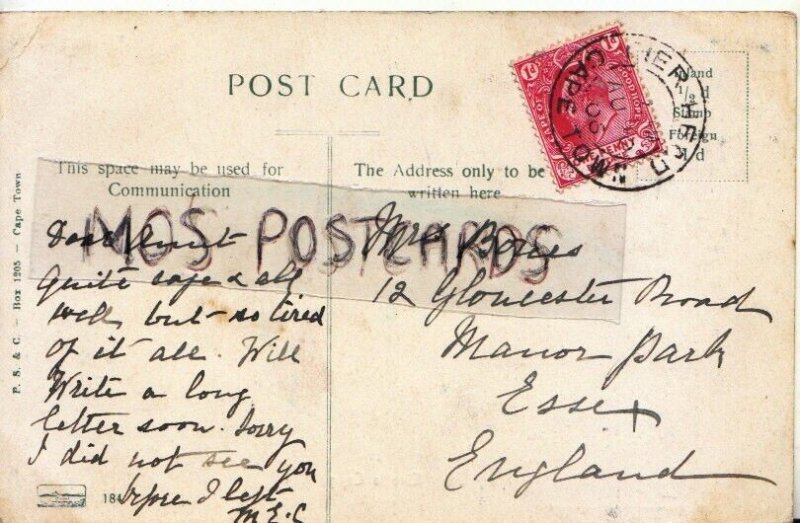 POST CARD
Inland
½d
Stamp
Foreign
1/d
This space may be used for
Communication
The Address only to be
written here
MOS POSTCARDS
Dear Aunt
Quite safe & all
well, but so tired
of it all. Will
Write a long
letter soon. Sorry
I did not see you
before I left
M.E.C
Mrs
12 Gloucester Road
Manor Park
Essex
England
P. S. & C. — Box 1205 — Cape Town
PENNY
1d
CAPE TO
AU
05